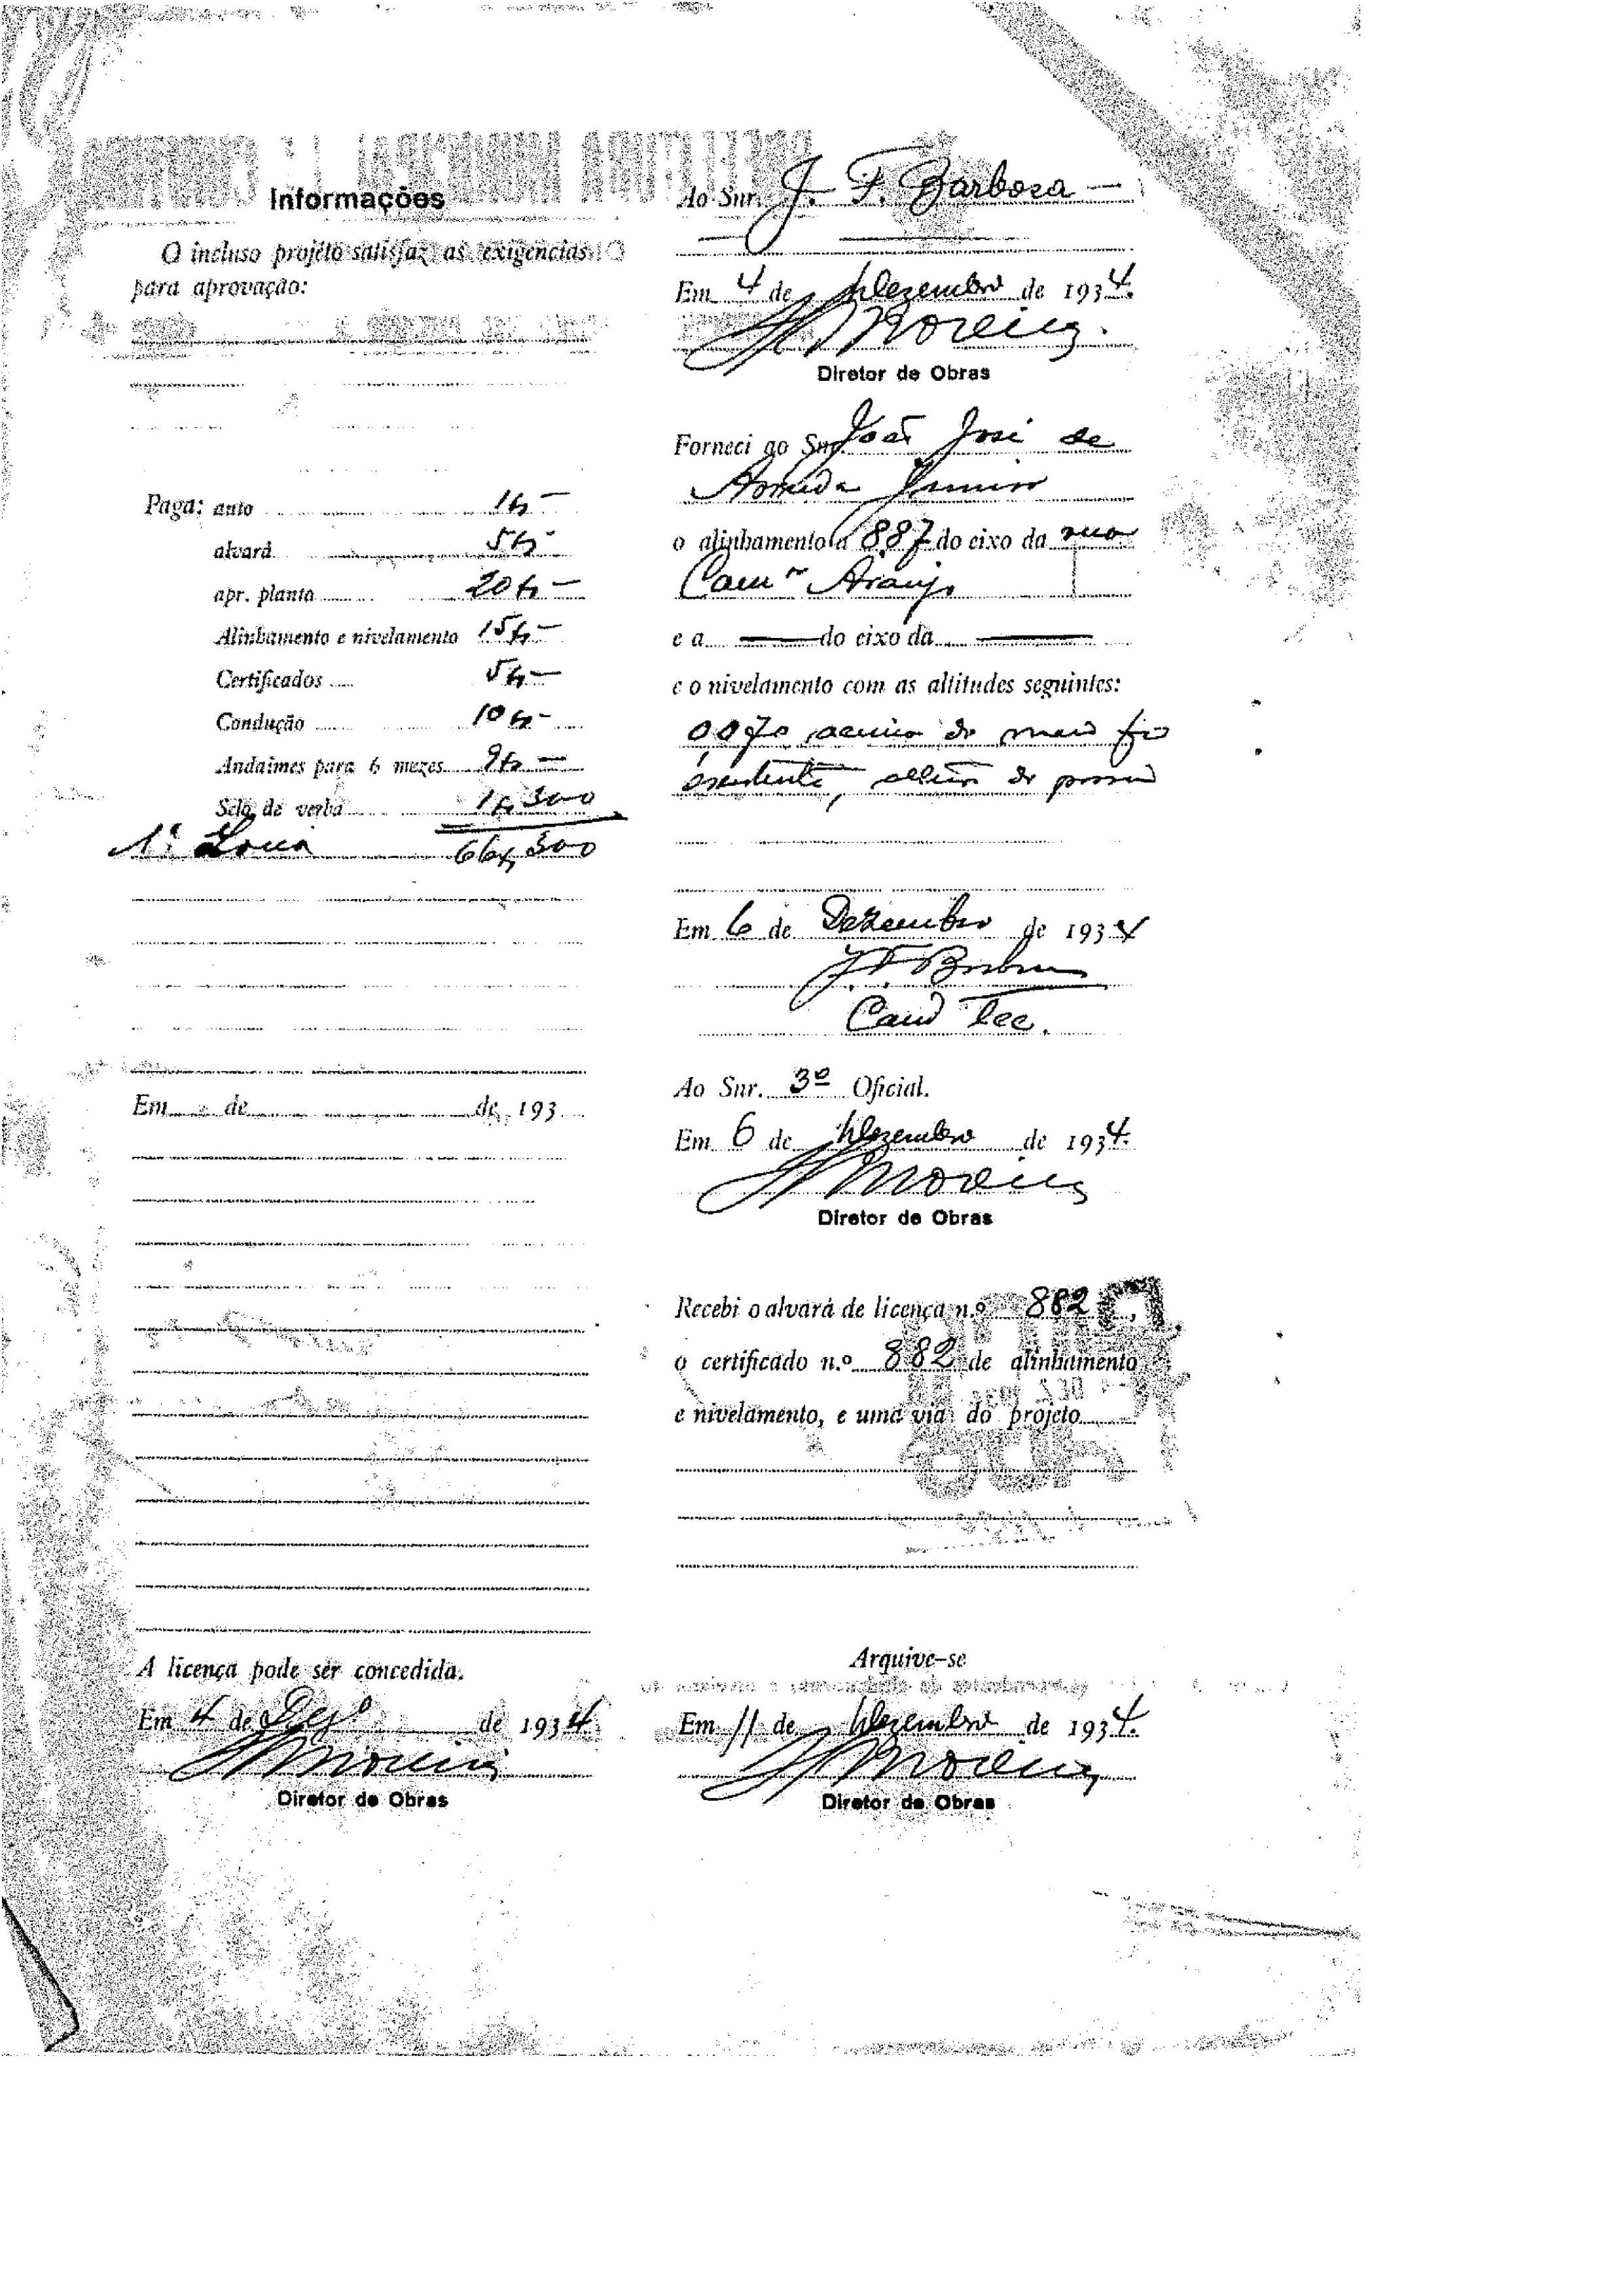 Informações
O incluso projéto satisfaz as exigencias
para aprovação:
Paga: auto 1$ —
alvará 5$ -
apr. planta 20$ —
Alinhamento e nivelamento 15$ —
Certificados 5$ —
Condução 10$ -
Andaimes para 6 mezes 9$ —
Selo de verba 1$300
66$300
Em de de 193
A licença pode ser concedida.
Em 4 de Dezº de 1934
Diretor de Obras
Ao Snr. J. F. Barbosa —
Em 4 de Dezembro de 1934.
Moreira
Diretor de Obras
Forneci ao Snr. João José de
Almeida Junior
o alinhamento a 8.87 do eixo da rua
Camº Araujo
e a — do eixo da —
e o nivelamento com as altitudes seguintes:
acima do meio fio
existente,
Em 6 de Dezembro de 1934
Ao Snr. 3º Oficial.
Em 6 de Dezembro de 1934.
Moreira
Diretor de Obras
Recebi o alvará de licença n.º 882
o certificado n.º 882 de alinhamento
e nivelamento, e uma via do projeto
Arquive-se
Em 11 de Dezembro de 1934.
Moreira
Diretor de Obras